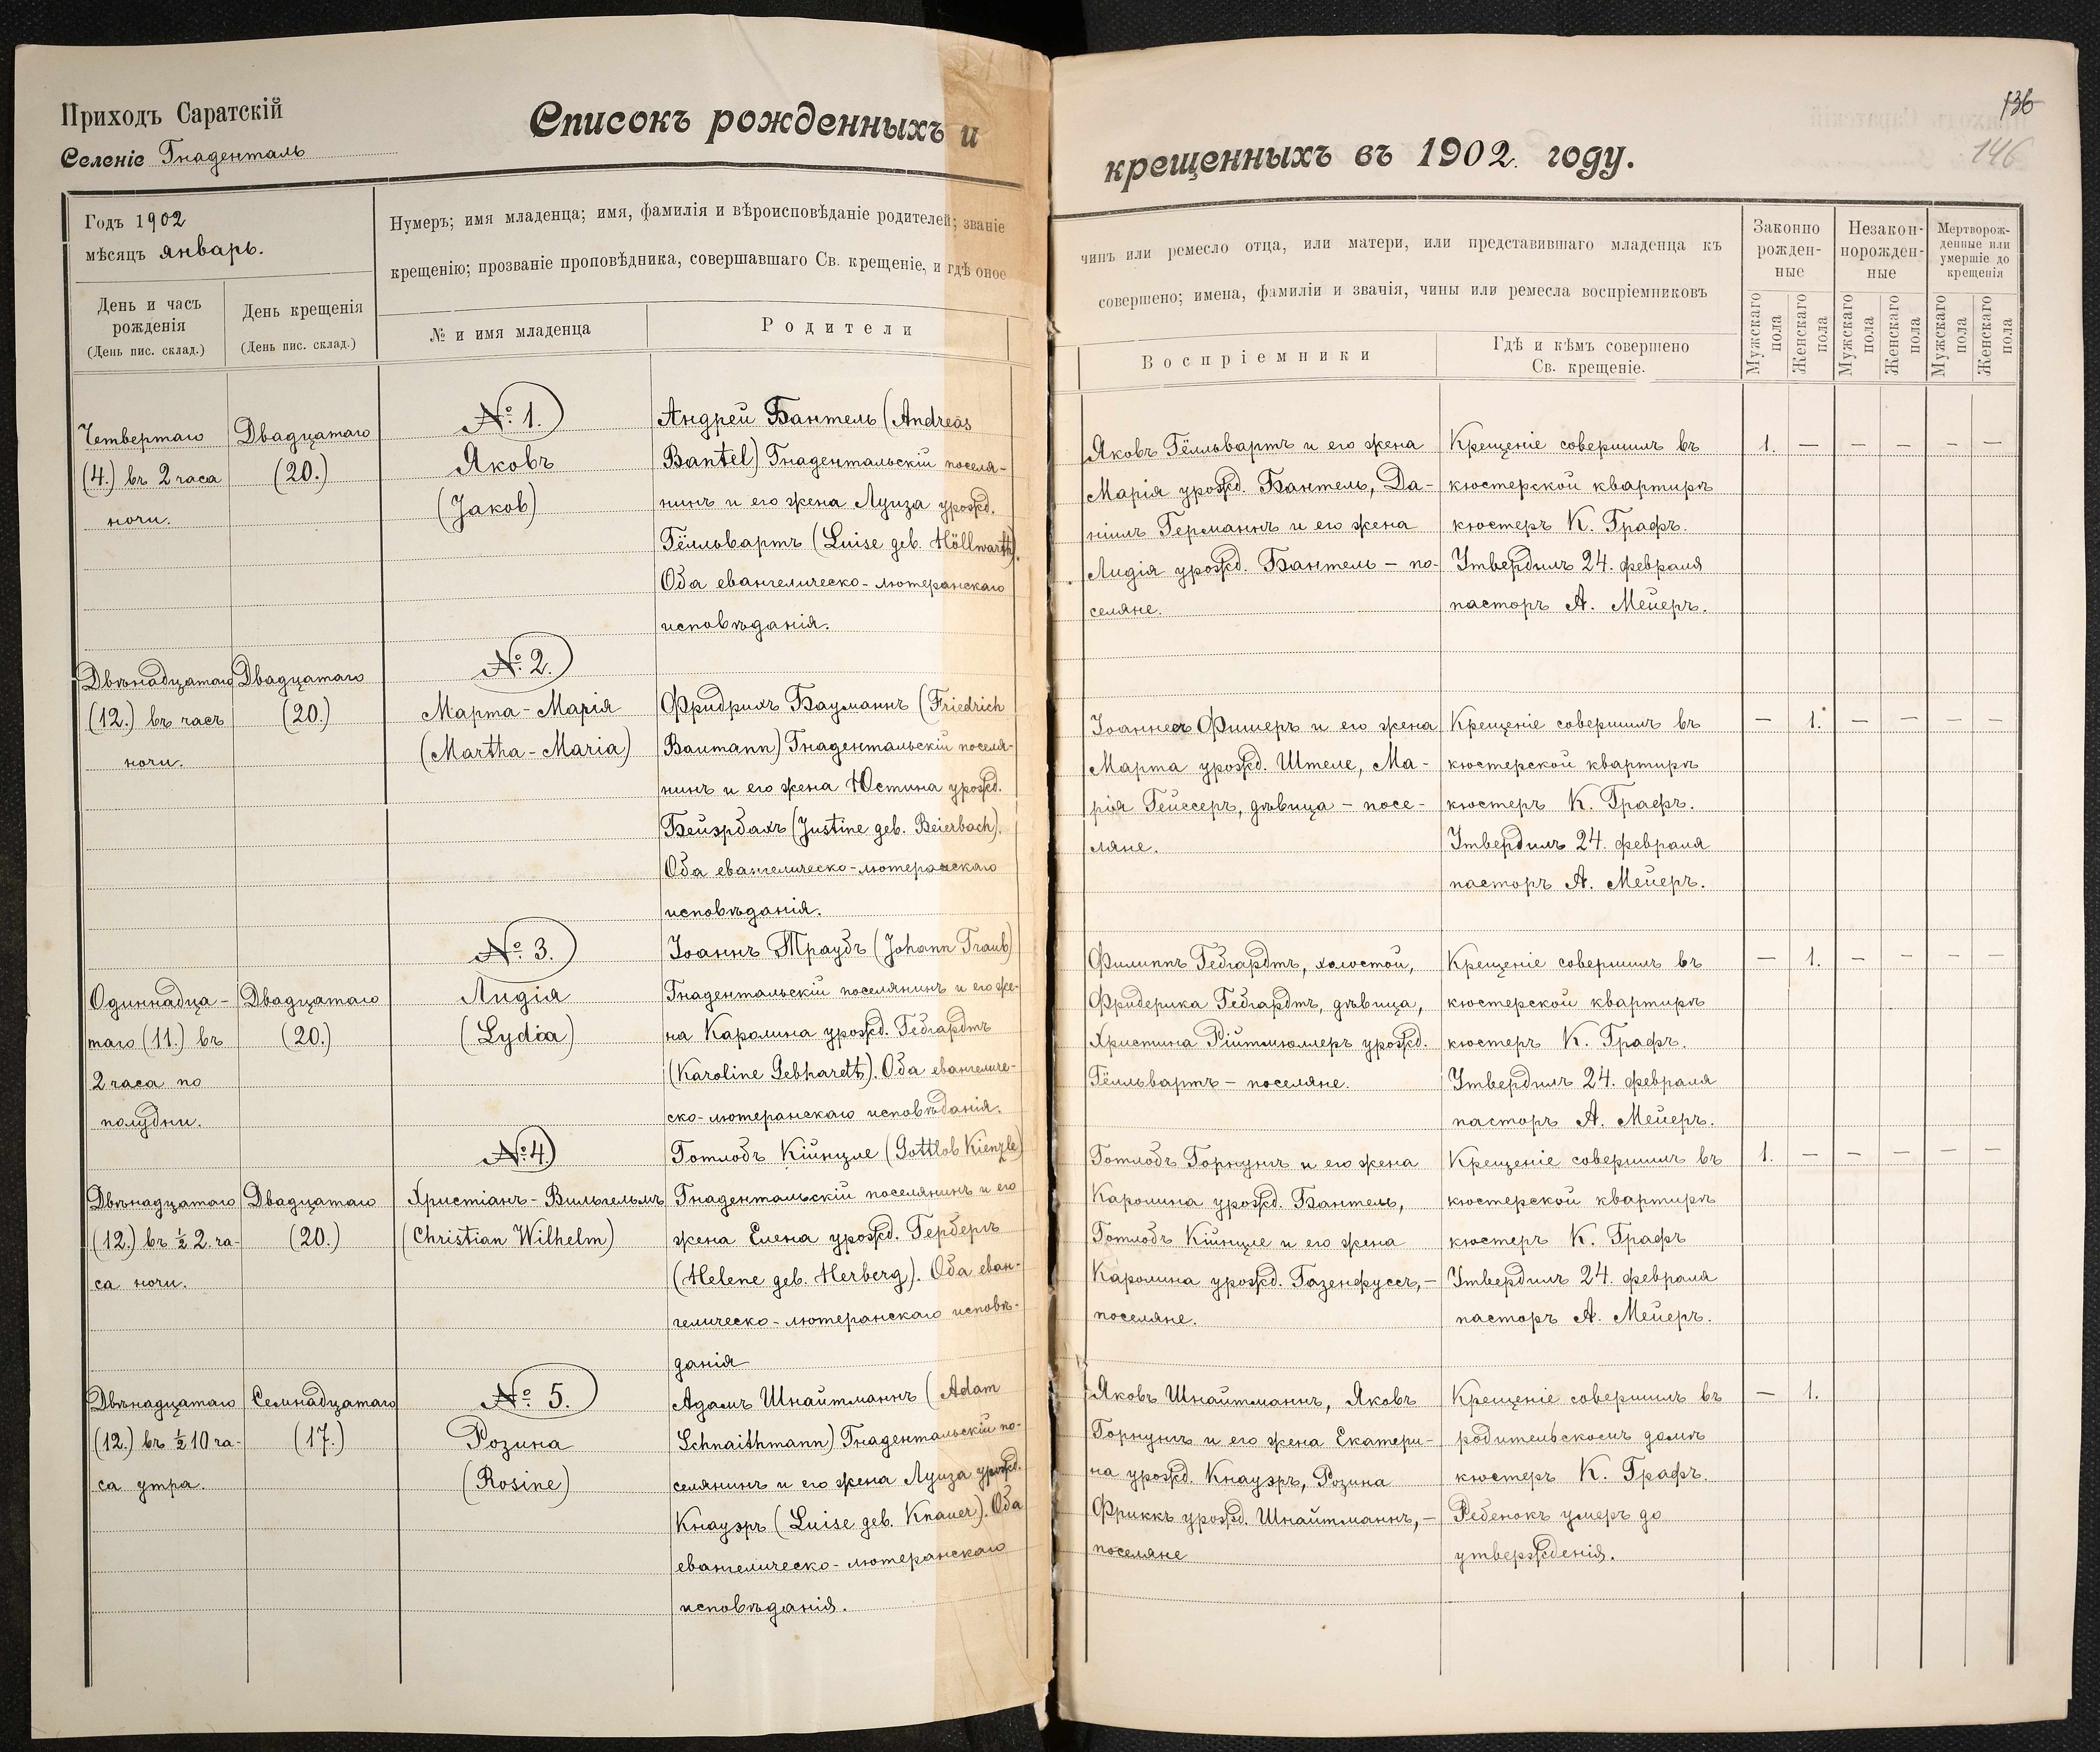 Приходъ Саратскій
Селеніе Гнаденталь
Списокъ рожденныхъ и
крещенныхъ въ 1902. году.
136
146
Годъ 1902
мѣсяцъ январь.
День и часъ
рожденія
(День пис. склад.)
День крещенія
(День пис. склад.)
Нумеръ; имя младенца; имя, фамилія и вѣроисповѣданіе родителей; званіе
крещенію; прозваніе проповѣдника, совершавшаго Св. крещеніе, и гдѣ оное
№ и имя младенца
Родители
чинъ или ремесло отца, или матери, или представившаго младенца къ
совершено; имена, фамиліи и званія, чины или ремесла воспріемниковъ
Воспріемники
Гдѣ и кѣмъ совершено
Св. крещеніе.
Законно
рожден-
ные
Незакон-
норожден-
ные
Мертворож-
денные или
умершіе до
крещенія
Мужскаго пола
Женскаго пола
Мужскаго пола
Женскаго пола
Мужскаго пола
Женскаго пола
Четвертаго
(4.) въ 2 часа
ночи.
Двадцатаго
(20.)
№ 1.
Яковъ
(Jakob)
Андрей Бантель (Andreas
Bantel) Гнадентальскій поселя-
нинъ и его жена Луиза урожд.
Гёлльвартъ (Luise geb. Höllwarth).
Оба евангелическо-лютеранскаго
исповѣданія.
Яковъ Гёлльвартъ и его жена
Марія урожд. Бантель, Да-
ніилъ Германнъ и его жена
Лидія урожд. Бантель - по-
селяне.
Крещеніе совершилъ въ
кюстерской квартирѣ
кюстеръ К. Графъ.
Утвердилъ 24. февраля
пасторъ А. Мейеръ.
1. — — — — —
Двѣнадцатаго
(12.) въ часъ
ночи.
Двадцатаго
(20.)
№ 2.
Марта-Марія
(Martha-Maria)
Фридрихъ Бауманнъ (Friedrich
Baumann) Гнадентальскій поселя-
нинъ и его жена Юстина урожд.
Бейэрбахъ (Justine geb. Beierbach).
Оба евангелическо-лютеранскаго
исповѣданія.
Іоаннесъ Фишеръ и его жена
Марта урожд. Штеле, Ма-
рія Гейссеръ, дѣвица - посе-
ляне.
Крещеніе совершилъ въ
кюстерской квартирѣ
кюстеръ К. Графъ.
Утвердилъ 24. февраля
пасторъ А. Мейеръ.
— 1. — — — —
Одиннадца-
таго (11.) въ
2 часа по
полудни.
Двадцатаго
(20.)
№ 3.
Лидія
(Lydia)
Іоаннъ Траубъ (Johann Traub)
Гнадентальскій поселянинъ и его же-
на Каролина урожд. Гебгардтъ
(Karoline Gebhardt). Оба евангеличе-
ско-лютеранскаго исповѣданія.
Филиппъ Гебгардтъ, холостой,
Фридерика Гебгардтъ, дѣвица,
Христина Рійтмюллеръ урожд.
Гёлльвартъ - поселяне.
Крещеніе совершилъ въ
кюстерской квартирѣ
кюстеръ К. Графъ.
Утвердилъ 24. февраля
пасторъ А. Мейеръ.
— 1. — — — —
Двѣнадцатаго
(12.) въ ½ 2. ча-
са ночи.
Двадцатаго
(20.)
№ 4.
Христіанъ-Вильгельмъ
(Christian Wilhelm)
Готлобъ Кійнцле (Gottlob Kienzle)
Гнадентальскій поселянинъ и его
жена Елена урожд. Гербергъ
(Helene geb. Herberg). Оба еван-
гелическо-лютеранскаго исповѣ-
данія
Готлобъ Горнунгъ и его жена
Каролина урожд. Бантель,
Готлобъ Кійнцле и его жена
Каролина урожд. Газенфуссъ, -
поселяне.
Крещеніе совершилъ въ
кюстерской квартирѣ
кюстеръ К. Графъ
Утвердилъ 24. февраля
пасторъ А. Мейеръ.
1. — — — — —
Двѣнадцатаго
(12.) въ ½ 10 ча-
са утра.
Семнадцатаго
(17.)
№ 5.
Розина
(Rosine)
Адамъ Шнайтманнъ (Adam
Schnaithmann) Гнадентальскій по-
селянинъ и его жена Луиза урожд.
Кнауэръ (Luise geb. Knauer). Оба
евангелическо-лютеранскаго
исповѣданія.
Яковъ Шнайтманнъ, Яковъ
Горнунгъ и его жена Екатери-
на урожд. Кнауэръ, Розина
Фриккъ урожд. Шнайтманнъ, -
поселяне
Крещеніе совершилъ въ
родительскомъ домѣ
кюстеръ К. Графъ.
Ребенокъ умеръ до
утвержденія.
— 1.